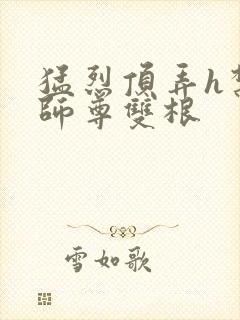 猛烈頂弄h
師尊雙根
雪如歌